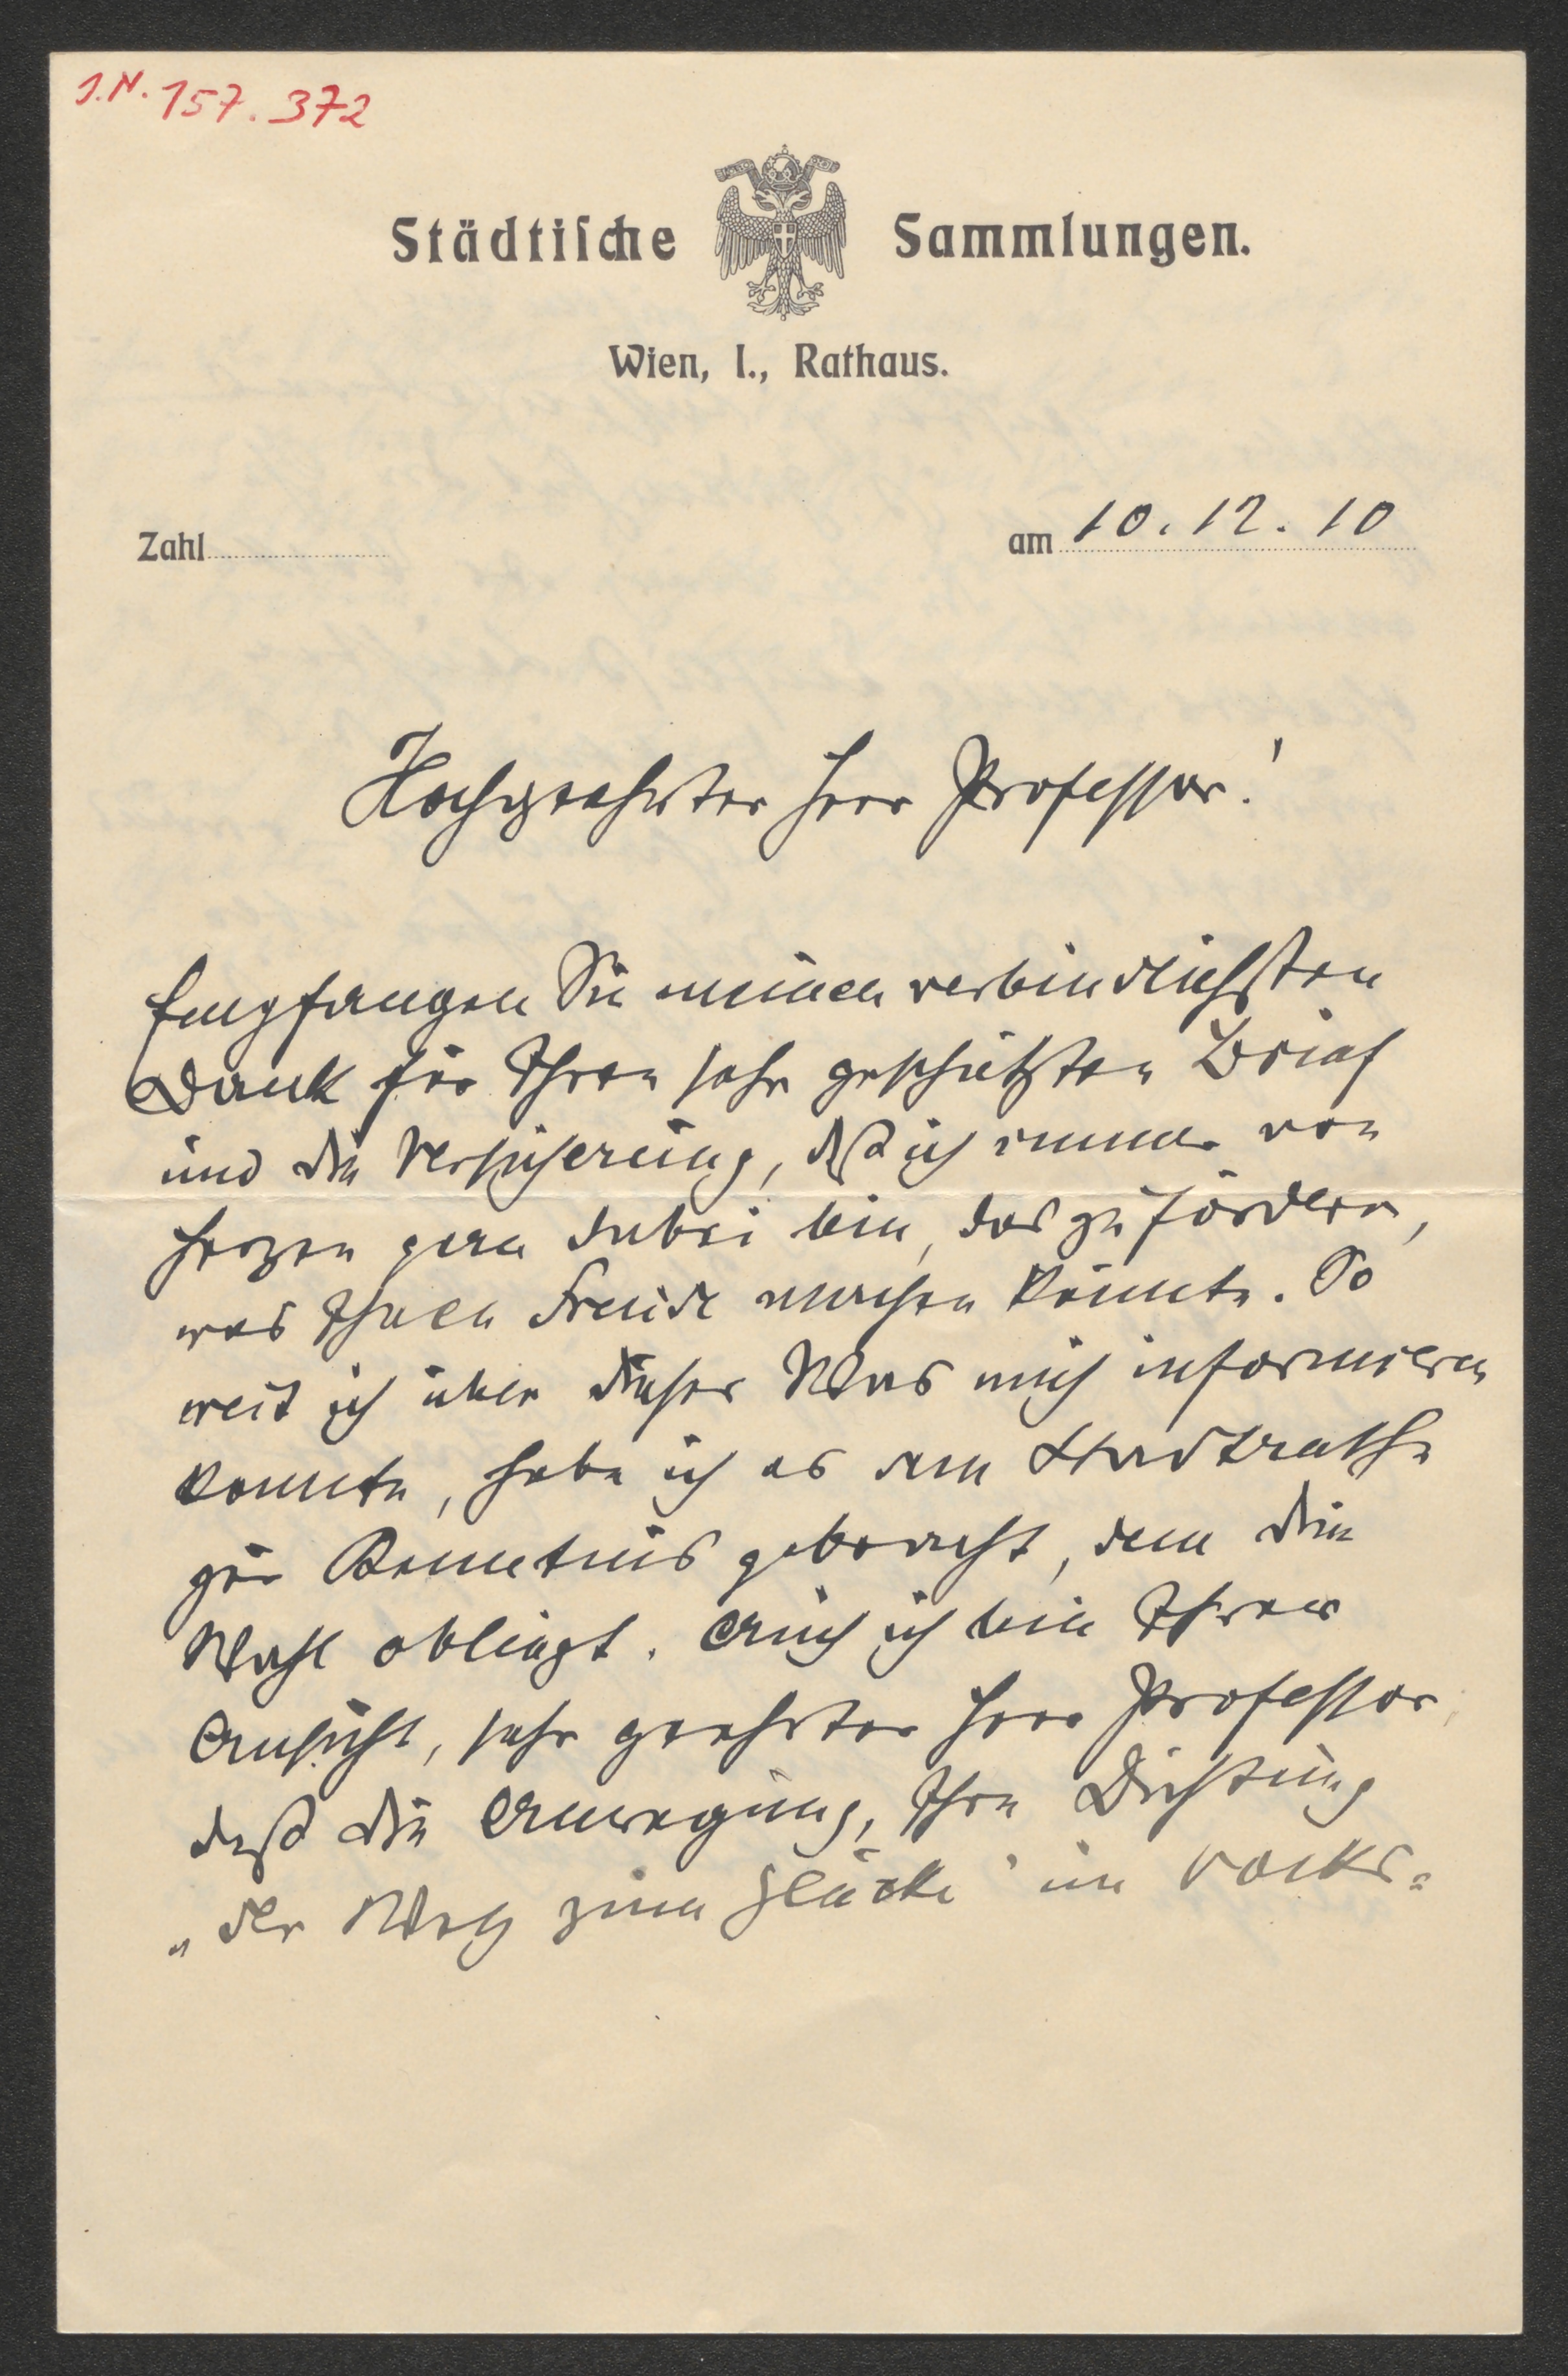 I.N. 157.372
Städtiſche Sammlungen.
Wien, I., Rathaus.
Zahl
am 10.12.10
Hochgeehrter Herr Professor!
Empfangen Sie meinen verbindlichsten
Dank für Ihren sehr geschätzten Brief
und die Versicherung, daß ich immer von
Herzen gern dabei bin, das zu fördern,
was Ihnen Freude machen könnte. So
weit ich über dieses Werk mich informieren
konnte, habe ich es dem Stadtrathe
zur Kenntnis gebracht, dem die
Wahl obliegt. Auch ich bin Ihrer
Ansicht, sehr geehrter Herr Professor,
daß die Anregung, Ihre Dichtung
„Der Weg zum Glücke" im Volks-